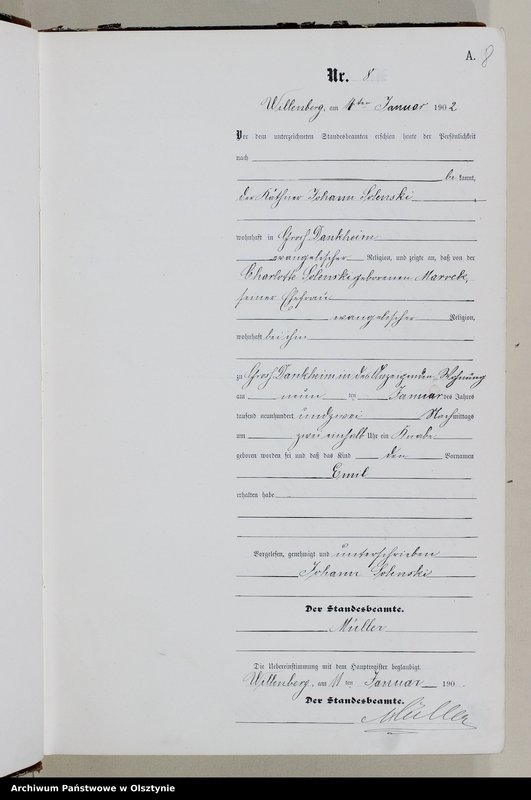 A. 8
Nr. 8
Willenberg, am 11ten Januar 1902
Vor dem unterzeichneten Standesbeamten erschien heute der Persönlichkeit
nach
be kannt,
der Käthner Johann Solenski
wohnhaft in Groß Dankheim
evangelischer Religion, und zeigte an, daß von der
Charlotte Solenski geborenen Marreck,
seiner Ehefrau
evangelischer Religion,
wohnhaft bei ihm
zu Groß Dankheim in des Anzeigenden Wohnung
am neun ten Januar des Jahres
tausend neunhundert und zwei Nachmittags
um zwei einhalb Uhr ein Knabe
geboren worden sei und daß das Kind den Vornamen
Emil
erhalten habe
Vorgelesen, genehmigt und unterschrieben
Johann Solenski
Der Standesbeamte.
Müller
Die Uebereinstimmung mit dem Hauptregister beglaubigt.
Willenberg, am 11 ten Januar 190
Der Standesbeamte.
Müller
Archiwum Państwowe w Olsztynie